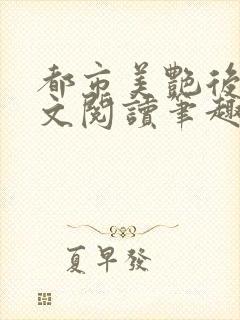 都市美艷後
文閱讀筆趣
夏早發